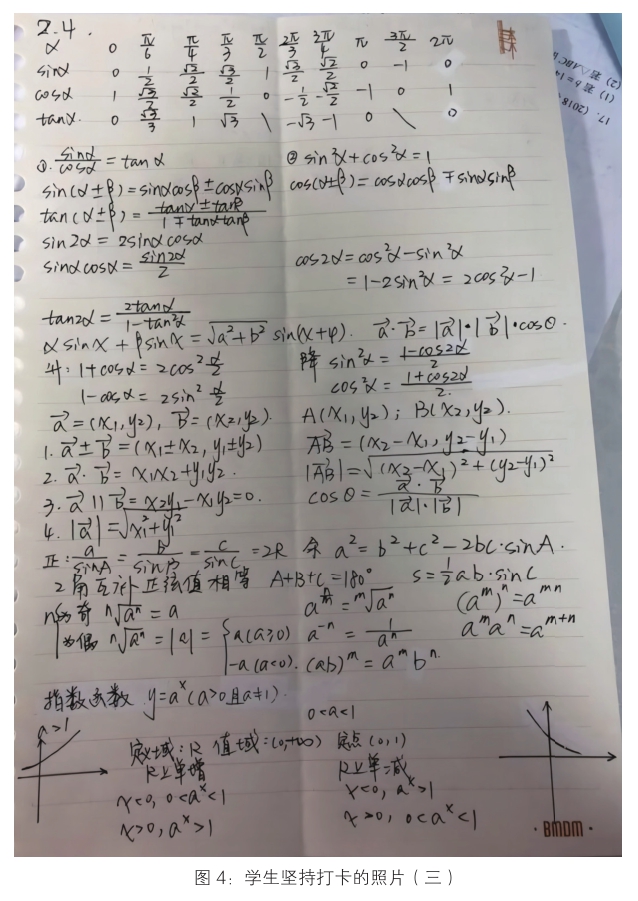 2.4.
α 0 π/6 π/4 π/3 π/2 2π/3 3π/4 π 3π/2 2π
sinα 0 1/2 √2/2 √3/2 1 √3/2 √2/2 0 -1 0
cosα 1 √3/2 √2/2 1/2 0 -1/2 -√2/2 -1 0 1
tanα. 0 √3/3 1 √3 \ -√3 -1 0 \ 0
17. (2018
(1) 若b=1
(2) 若△ABC
①. sinα/cosα = tanα ② sin²α+cos²α=1
sin(α±β)=sinαcosβ±cosαsinβ cos(α±β)=cosαcosβ∓sinαsinβ
tan(α±β)= (tanα±tanβ)/(1∓tanαtanβ)
sin2α = 2sinαcosα
sinαcosα= sin2α/2 cos2α=cos²α-sin²α
=1-2sin²α = 2cos²α-1
tan2α= 2tanα/(1-tan²α)
αsinX+βsinX=√(a²+b²) sin(X+φ). a⃗·b⃗=|a⃗|·|b⃗|·cosθ.
升: 1+cosα= 2cos² α/2 降 sin²α= (1-cos2α)/2
1-cosα= 2sin² α/2 cos²α= (1+cos2α)/2.
a⃗=(X₁,y₂), b⃗=(X₂,y₂). A(X₁,y₂); B(X₂,y₂).
1. a⃗±b⃗=(X₁±X₂, y₁±y₂) AB⃗=(X₂-X₁, y₂-y₁)
2. a⃗·b⃗= X₁X₂+y₁y₂. |AB⃗|=√((X₂-X₁)²+(y₂-y₁)²)
3. a⃗∥b⃗=X₂y₁-X₁y₂=0. cosθ= a⃗·b⃗/(|a⃗|·|b⃗|)
4. |a⃗|=√(X₁²+y₁²)
正: a/sinA = b/sinB = c/sinC =2R 余 a²=b²+c²-2bc·sinA.
2角互补正弦值相等 A+B+C=180° S=½ab·sinC
n为奇 ⁿ√aⁿ = a a^(n/m)=ᵐ√aⁿ (aᵐ)ⁿ=aᵐⁿ
为偶 ⁿ√aⁿ=|a|={a(a≥0) a⁻ⁿ= 1/aⁿ aᵐaⁿ=aᵐ⁺ⁿ
-a(a<0). (ab)ᵐ=aᵐbⁿ.
指数函数 y=aˣ(a>0且a≠1).
a>1 0<a<1
定义域:R 值域:(0,+∞) 定点(0,1)
R上单增 R上单减
x<0, 0<aˣ<1 x<0, aˣ>1
x>0, aˣ>1 x>0, 0<aˣ<1
BMDM
图 4：学生坚持打卡的照片（三）